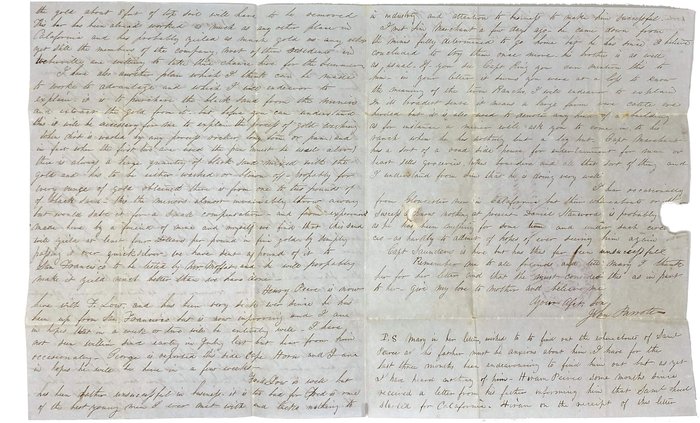 the gold about 8 feet of top soil will have to be removed
This bar has been already worked as much as any other place in
California and has probably yielded as much gold as any other
not still the members of the company most of them residents in
are willing to take their chance here for the summer
I have also another plan which I think can be made
to work to advantage and which I will endeavor to
explain. it is to purchase the black sand from the miners
and extract the gold from it. but before you can understand
this it will be necessary for me to explain the process of gold washing
When dirt is washed in any form of rocker
in fact when the first has been used the pan must be used also
there is always a large quantity of black sand mixed with the
gold and has to be either washed or blown of. probably for
every ounce of gold obtained there is from one to two pounds of
of black sand. this the miners almost invariably throw away
but would save it for a small compensation. and from experiments
made here by a friend of mine and myself we find that this sand
will yield at least four dollars per pound in fine gold by simply
passing it over quicksilver. we have sent a pound of it to
San Francisco to be tested by and he will probably
make it yield much better than we have done
Henry Peirce is now
here with F. Low, and has been very sick ever since he has
been up from San Francisco but is now improving and I am
in hopes that in a week or two will be entirely well. I have
not seen since early in July last but hear from him
occasionally. George is reported this side Cape Horn and I am
in hopes he will be here in a few weeks
Fred Low is well but
has been rather unsuccessful in business it is too bad for Fred is one
of the best young men I ever met with and lacks nothing
in industry and attention to business to make him successful
I met Merchant a few days ago he came down from
the mines fully determined to go home but he has since I believe
concluded to try them once more his brother is as well
as usual. If you see Capt King please mention this to
him. in your letter it seems you were at a loss to know
the meaning of the term Rancho. I will endeavor to explain
In its broadest sense it means a large farm some cattle are
but it is also used to denote any kind of a building
as for instance a miner will ask you to come in to his
Ranch when he has nothing but a sky tent. Capt Merchant
has a sort of a road side house for entertainment for man or
beast sells groceries takes boarders and all that sort of thing and
I understand from him that he is doing very well
I hear occasionally
from Gloucester men in California but
nothing at present Daniel Stanwood is probably
as he has been missing for some time and under such circum
as hardly to admit of hopes of ever seeing him again
Capt Saunders is here but has thus far been unsuccessful
Remember me to all. particularly Mary. I thank
her for her letter and that she must consider this as in part
to her. Give my love to Mother and believe me
Your Aft Son
John Parrott
P.S Mary in her letter wished to to find out the whereabouts of Saml
Peirce as his father must be anxious about him I have for the
last three months been endeavouring to find him out but as yet
I have heard nothing of him. Hiram Peirce some months since
received a letter from his father informing him that Saml had
started for California. Hiram on the receipt of this letter